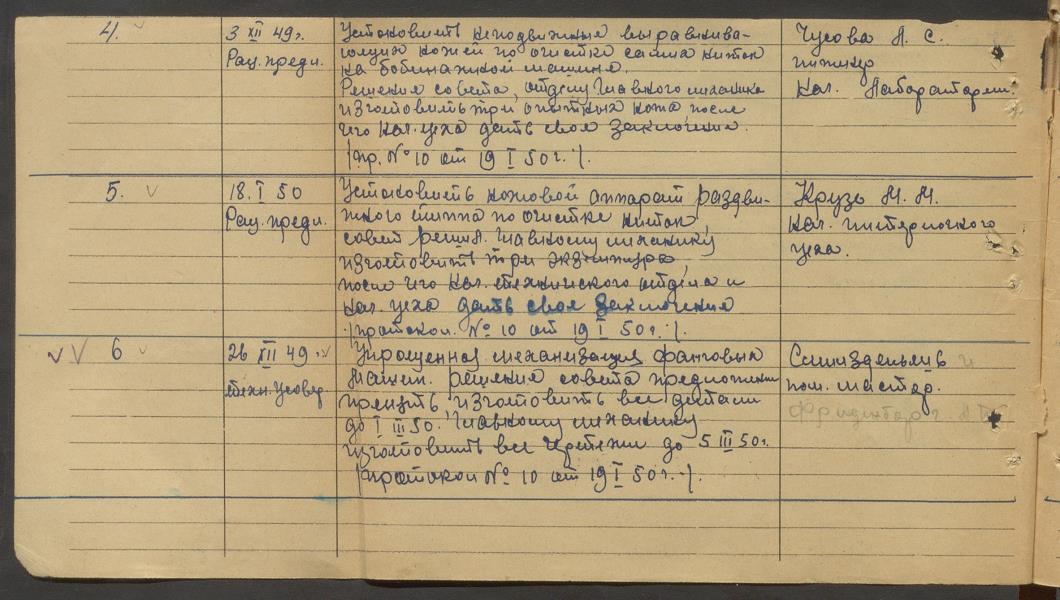 4.
3 XII 49г.
Рац. предл.
Установить неподвижные выравнива-
ющих ножей по очистке сашла ниток
на бобинажной машине.
Решение совета, отделу главного механика
изготовить три опытных ножа после
чего нач. цеха дать свое заключение.
/пр. № 10 от 19 I 50 г./.
Чусова А. С.
инженер
нач. Лаборатории.
5.
18. I 50
Рац. предл.
Установить ножовой аппарат раздви-
жного типа по очистке ниток,
совет решил. Главному механику
изготовить три экземпляра,
после чего нач. технического отдела и
нач. цеха дать свое заключение
/протокол. № 10 от 19 I 50 г./.
Крузе М. М.
нач.
цеха.
6
26 XII 49 г.
техн. усовер.
Упрощенная механизация фанговых
машин. решение совета предложение
принять, изготовить все детали
до 1 III 50. Главному механику
изготовить все чертежи до 5 III 50г.
/протокол № 10 от 19 I 50 г./.
и
пом. мастер.